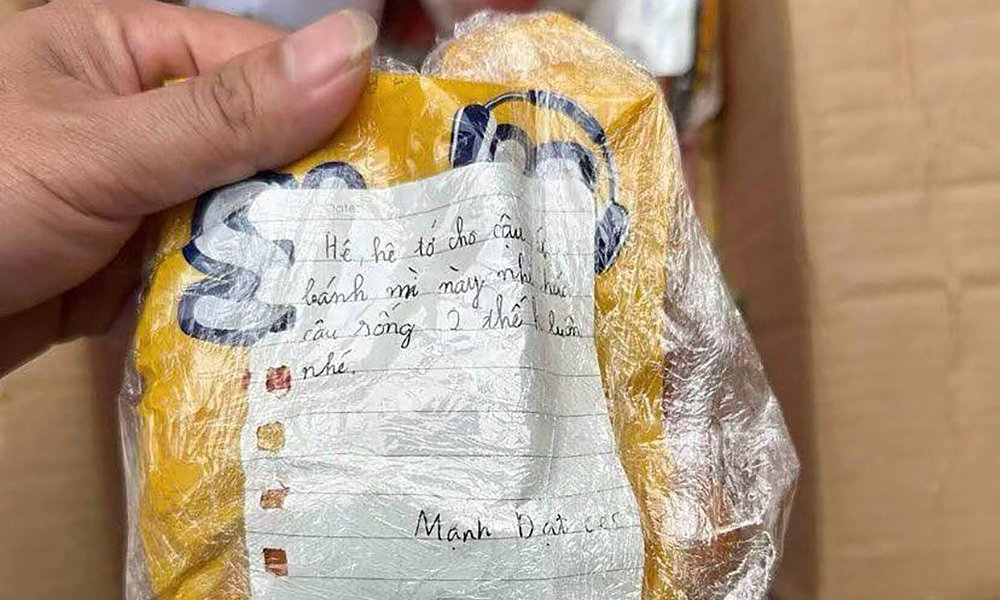 Date
Hé, hê tớ cho cậu
bánh mì này nhé chúc
cậu sống 2 thế luôn
nhé.
Mạnh Đạt